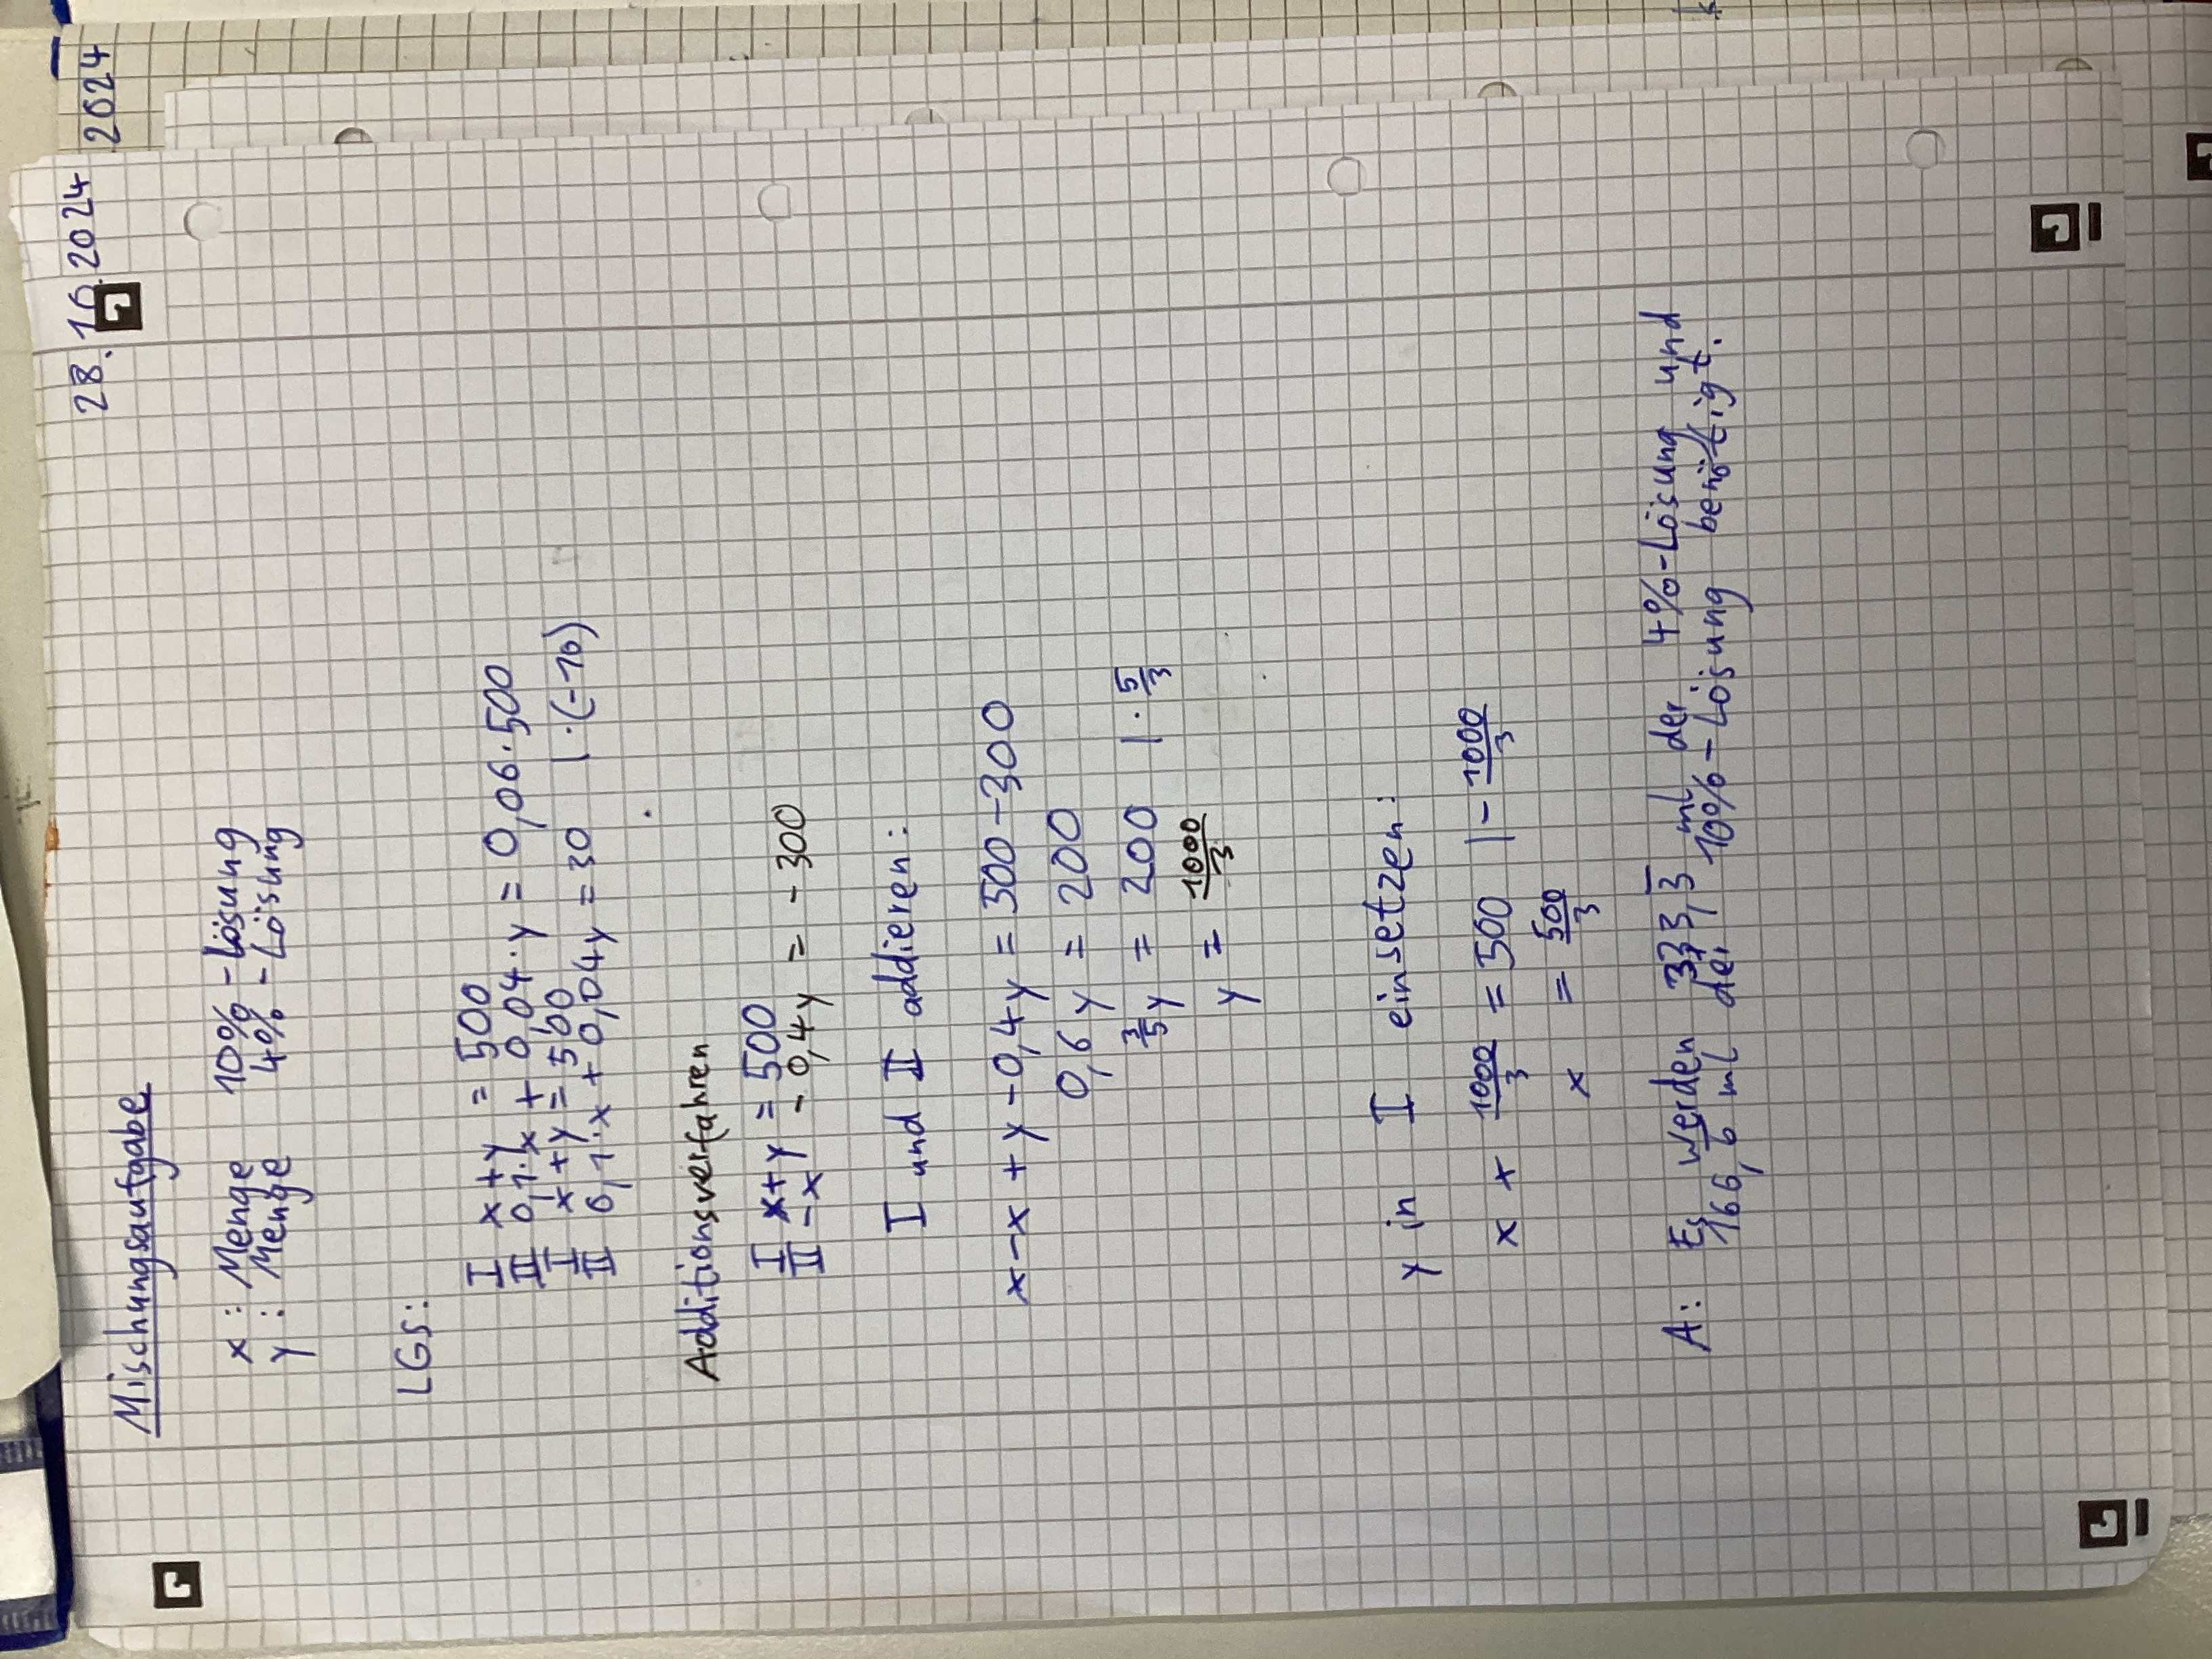 28.10.2024
.2024
Mischungsaufgabe
x : Menge 10% - Lösung
y : Menge 4% - Lösung
LGS:
I x + y = 500
II 0,1·x + 0,04·y = 0,06·500
I x + y = 500
II 0,1·x + 0,04y = 30 | ·(-10)
Additionsverfahren
I x+y = 500
II -x - 0,4y = -300
I und II addieren:
x-x + y - 0,4y = 500 - 300
0,6y = 200
3/5 y = 200 | · 5/3
y = 1000/3
y in I einsetzen:
x + 1000/3 = 500 | - 1000/3
x = 500/3
A: Es werden 333,3̅ ml der 4%-Lösung und
166,6 ml der 10% - Lösung benötigt.